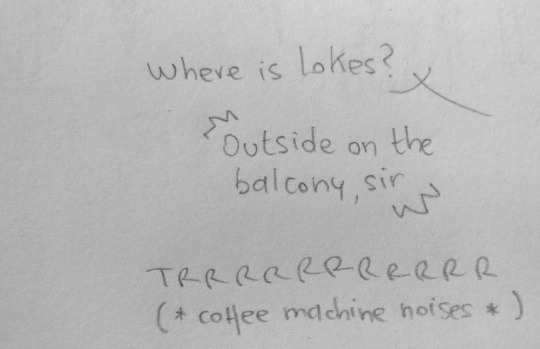 Where is lokes?
Outside on the
balcony, sir
TRRRRRRRRRRR
(* coffee machine noises *)